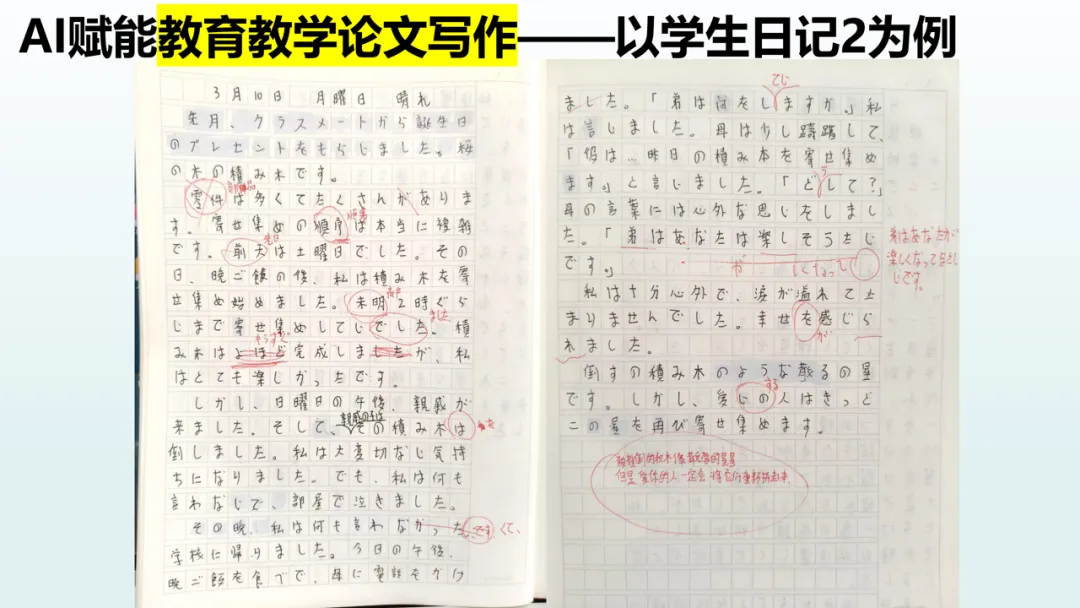 AI赋能教育教学论文写作——以学生日记2为例
3月10日 月曜日 晴れ
先月、クラスメートから誕生日
のプレゼントをもらいました。桜
の木の積み木です。
零件は多くてたくさんがありま
部品
す。寄せ集めの順序は本当に複雑
順番
です。前天は土曜日でした。その
先日
日、晩ご飯の後、私は積み木を寄
せ集め始めました。未明2時ぐら
いまで寄せ集めしていでした。積
ました
み木はよほど完成しましたが、私
はとても楽しかったです。
しかし、日曜日の午後、親戚が
来ました。そして、その積み木は
親戚の子は
を
倒しました。私は大変切ない気持
ちになりました。でも、私は何も
言わないで、部屋で泣きました。
その晩、私は何も言わなかったです
くて、
学校に帰りました。今日の午後、
晩ご飯を食べで、母に電話をかけ
ました。「弟は何をしますか。」私
てい
は言いました。母は少し躊躇して、
「彼は…昨日の積み本を寄せ集め
ます。」と言いました。「どして?」
う
母の言葉には心外な思いをしまし
た。「弟はあなたは楽しそうたい
です。」
が
しくなって
弟はあなたが
楽しくなってほし
いです。
私は十分心外で、涙が溢れて止
まりませんでした。幸せを感じら
が
れました。
倒すの積み木のような散るの星
です。しかし、愛しの人はきっと
する
この星を再び寄せ集めます。
但是 爱你的人一定会 将它们重新拼起来.